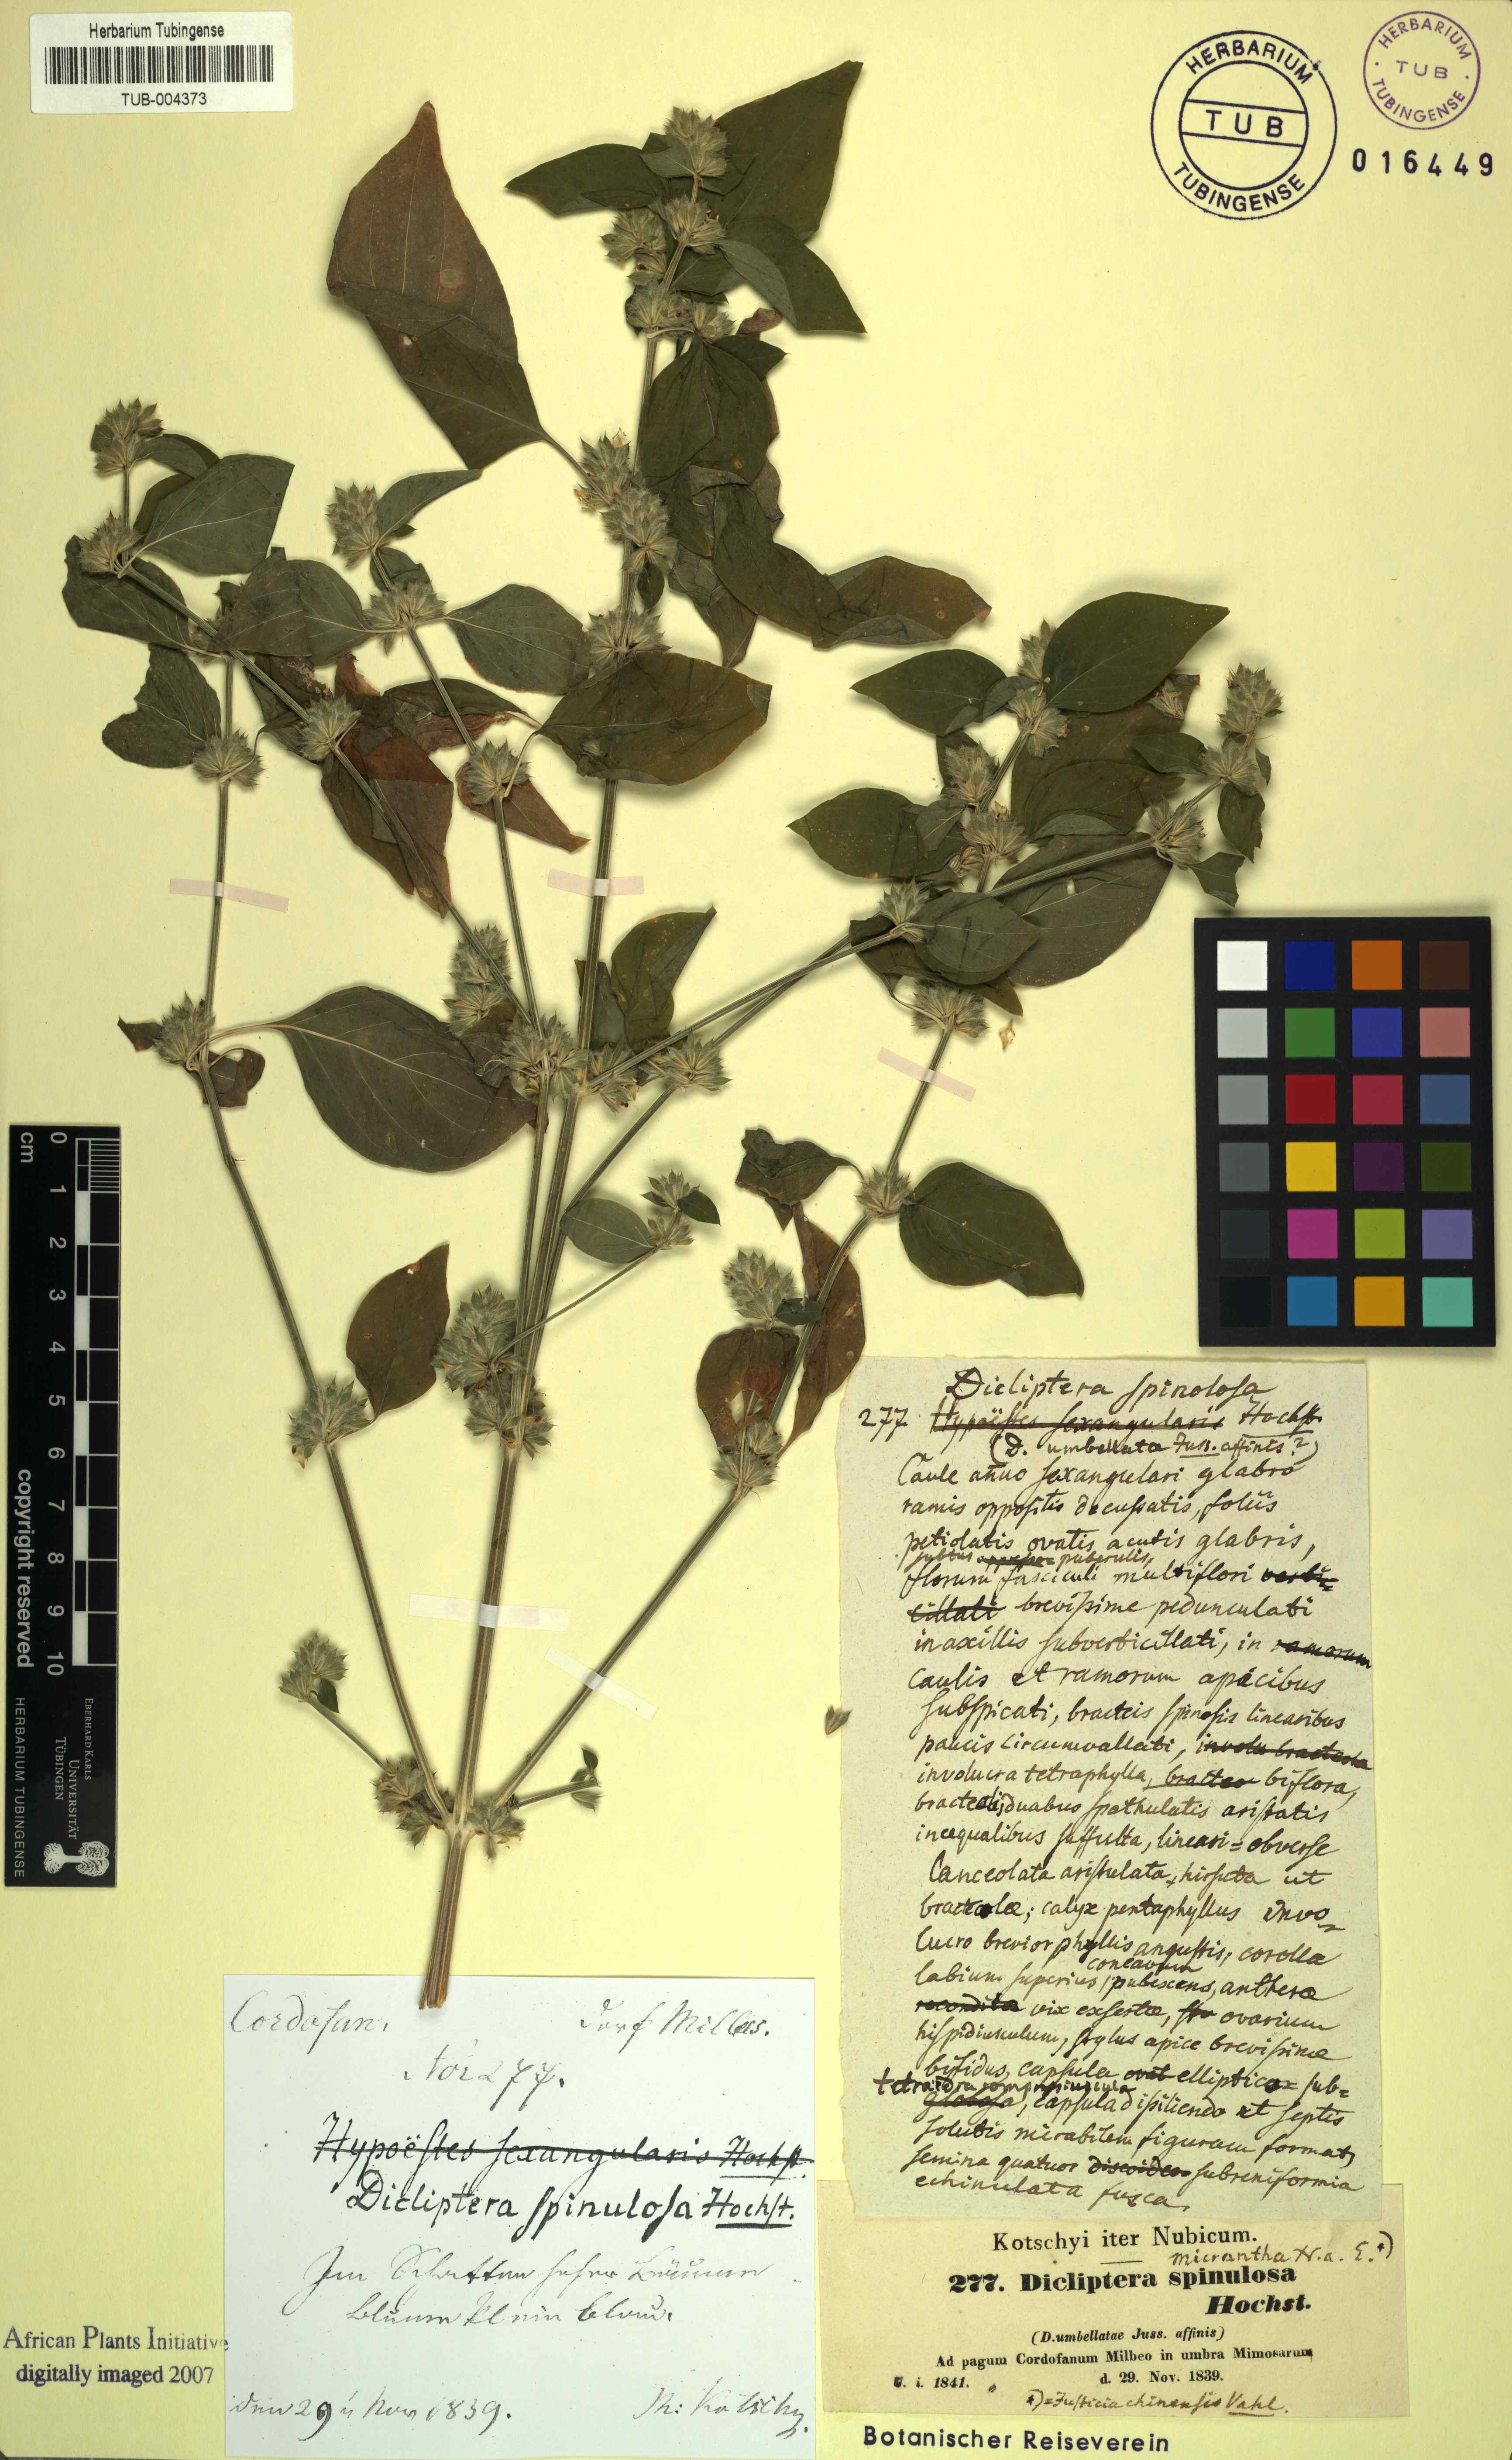 Herbarium Tubingense
TUB-004373
HERBARIUM
TUB
TUBINGENSE
HERBARIUM
TUB
TUBINGENSE
016449
cm
0
1
2
3
4
5
6
7
8
9
10
copyright reserved
HERBARIUM TUBINGENSE
EBERHARD KARLS
UNIVERSITÄT
TÜBINGEN
Dicliptera spinolosa
277. Hypoëstes sexangularis Hochst.
(D. umbellatae Juss. affinis?)
Caule annuo sexangulari glabro
ramis oppositis decussatis, foliis
petiolatis ovatis acutis glabris,
subtus puberulis,
florum fasciculi multiflori verti-
cillati brevissime pedunculati
in axillis subverticillati, in ramorum
caulis et ramorum apicibus
subspicati, bracteis spinosis linearibus
paucis circumvallati, involu bracteola
involucra tetraphylla, bracteo biflora,
bracteolis duabus spathulatis aristatis
inaequalibus suffulta, lineari=obverse
lanceolata aristulata, hirsuta ut
bracteolae; calyx pentaphyllus invo=
lucro brevior phyllis angustis; corolla
labium superius concavum, pubescens, antherae
recondita vix exsertae, ovarium
hispidiusculum, stylus apice brevissime
bifidus, capsula ovat elliptica sub=
tetraedra compressiuscula
globosa, capsula dissiliendo et septis
solutis mirabilem figuram format,
semina quatuor discoidea subreniformia
echinulata fusca.
Cordofan. Dorf Milbes.
Nor 277.
Hypoëstes sexangularis Hochst.
Dicliptera spinulosa Hochst.
Im Schatten hoher Bäume
Blume klein blau.
den 29 Nov 1839. Th: Kotschy.
Kotschyi iter Nubicum.
micrantha N. a. E. *)
277. Dicliptera spinulosa
Hochst.
(D. umbellatae Juss. affinis)
Ad pagum Cordofanum Milbeo in umbra Mimosarum
U. i. 1841. d. 29. Nov. 1839.
*) = Justicia chinensis Vahl.
Botanischer Reiseverein
African Plants Initiative
digitally imaged 2007